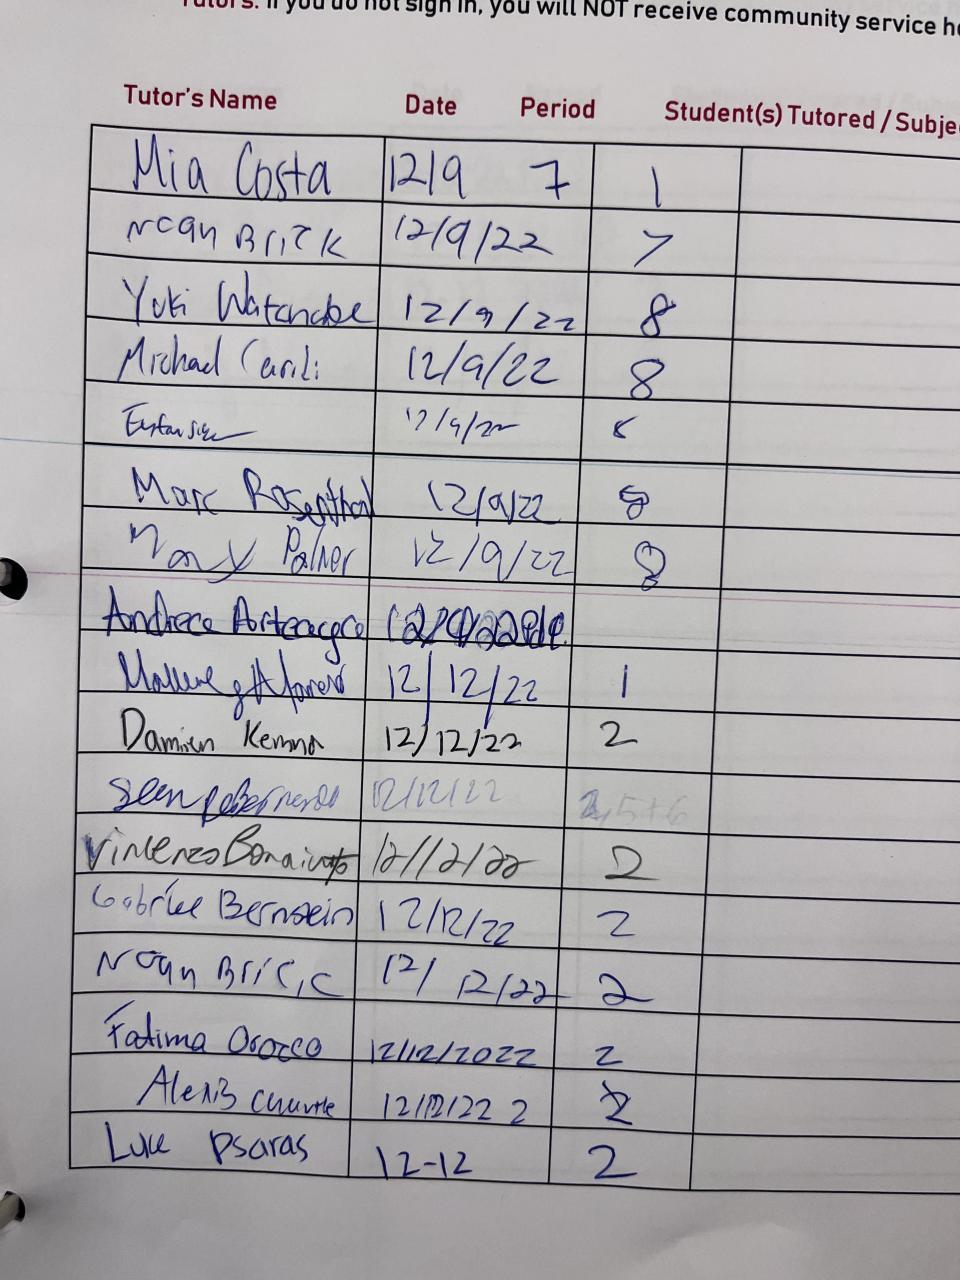 Tutors: If you do not sign in, you will NOT receive community service
Tutor's Name Date Period Student(s) Tutored /
Mia Costa 12/9 7 1
Brick 12/9/22 7
Yuki Watanabe 12/9/22 8
Michael 12/9/22 8
12/9/22
Marc Rosenthal 12/9/22 8
Max Palmer 12/9/22 8
Arteaga
12/12/22 1
Damien 12/12/22 2
Sean 12/12/22 2,5+6
Vincenzo 12/12/22 2
Bernstein 12/12/22 2
12/12/22 2
Fatima Orozco 12/12/2022 2
Alexis 12/12/22 2 2
Luke Psaras 12-12 2